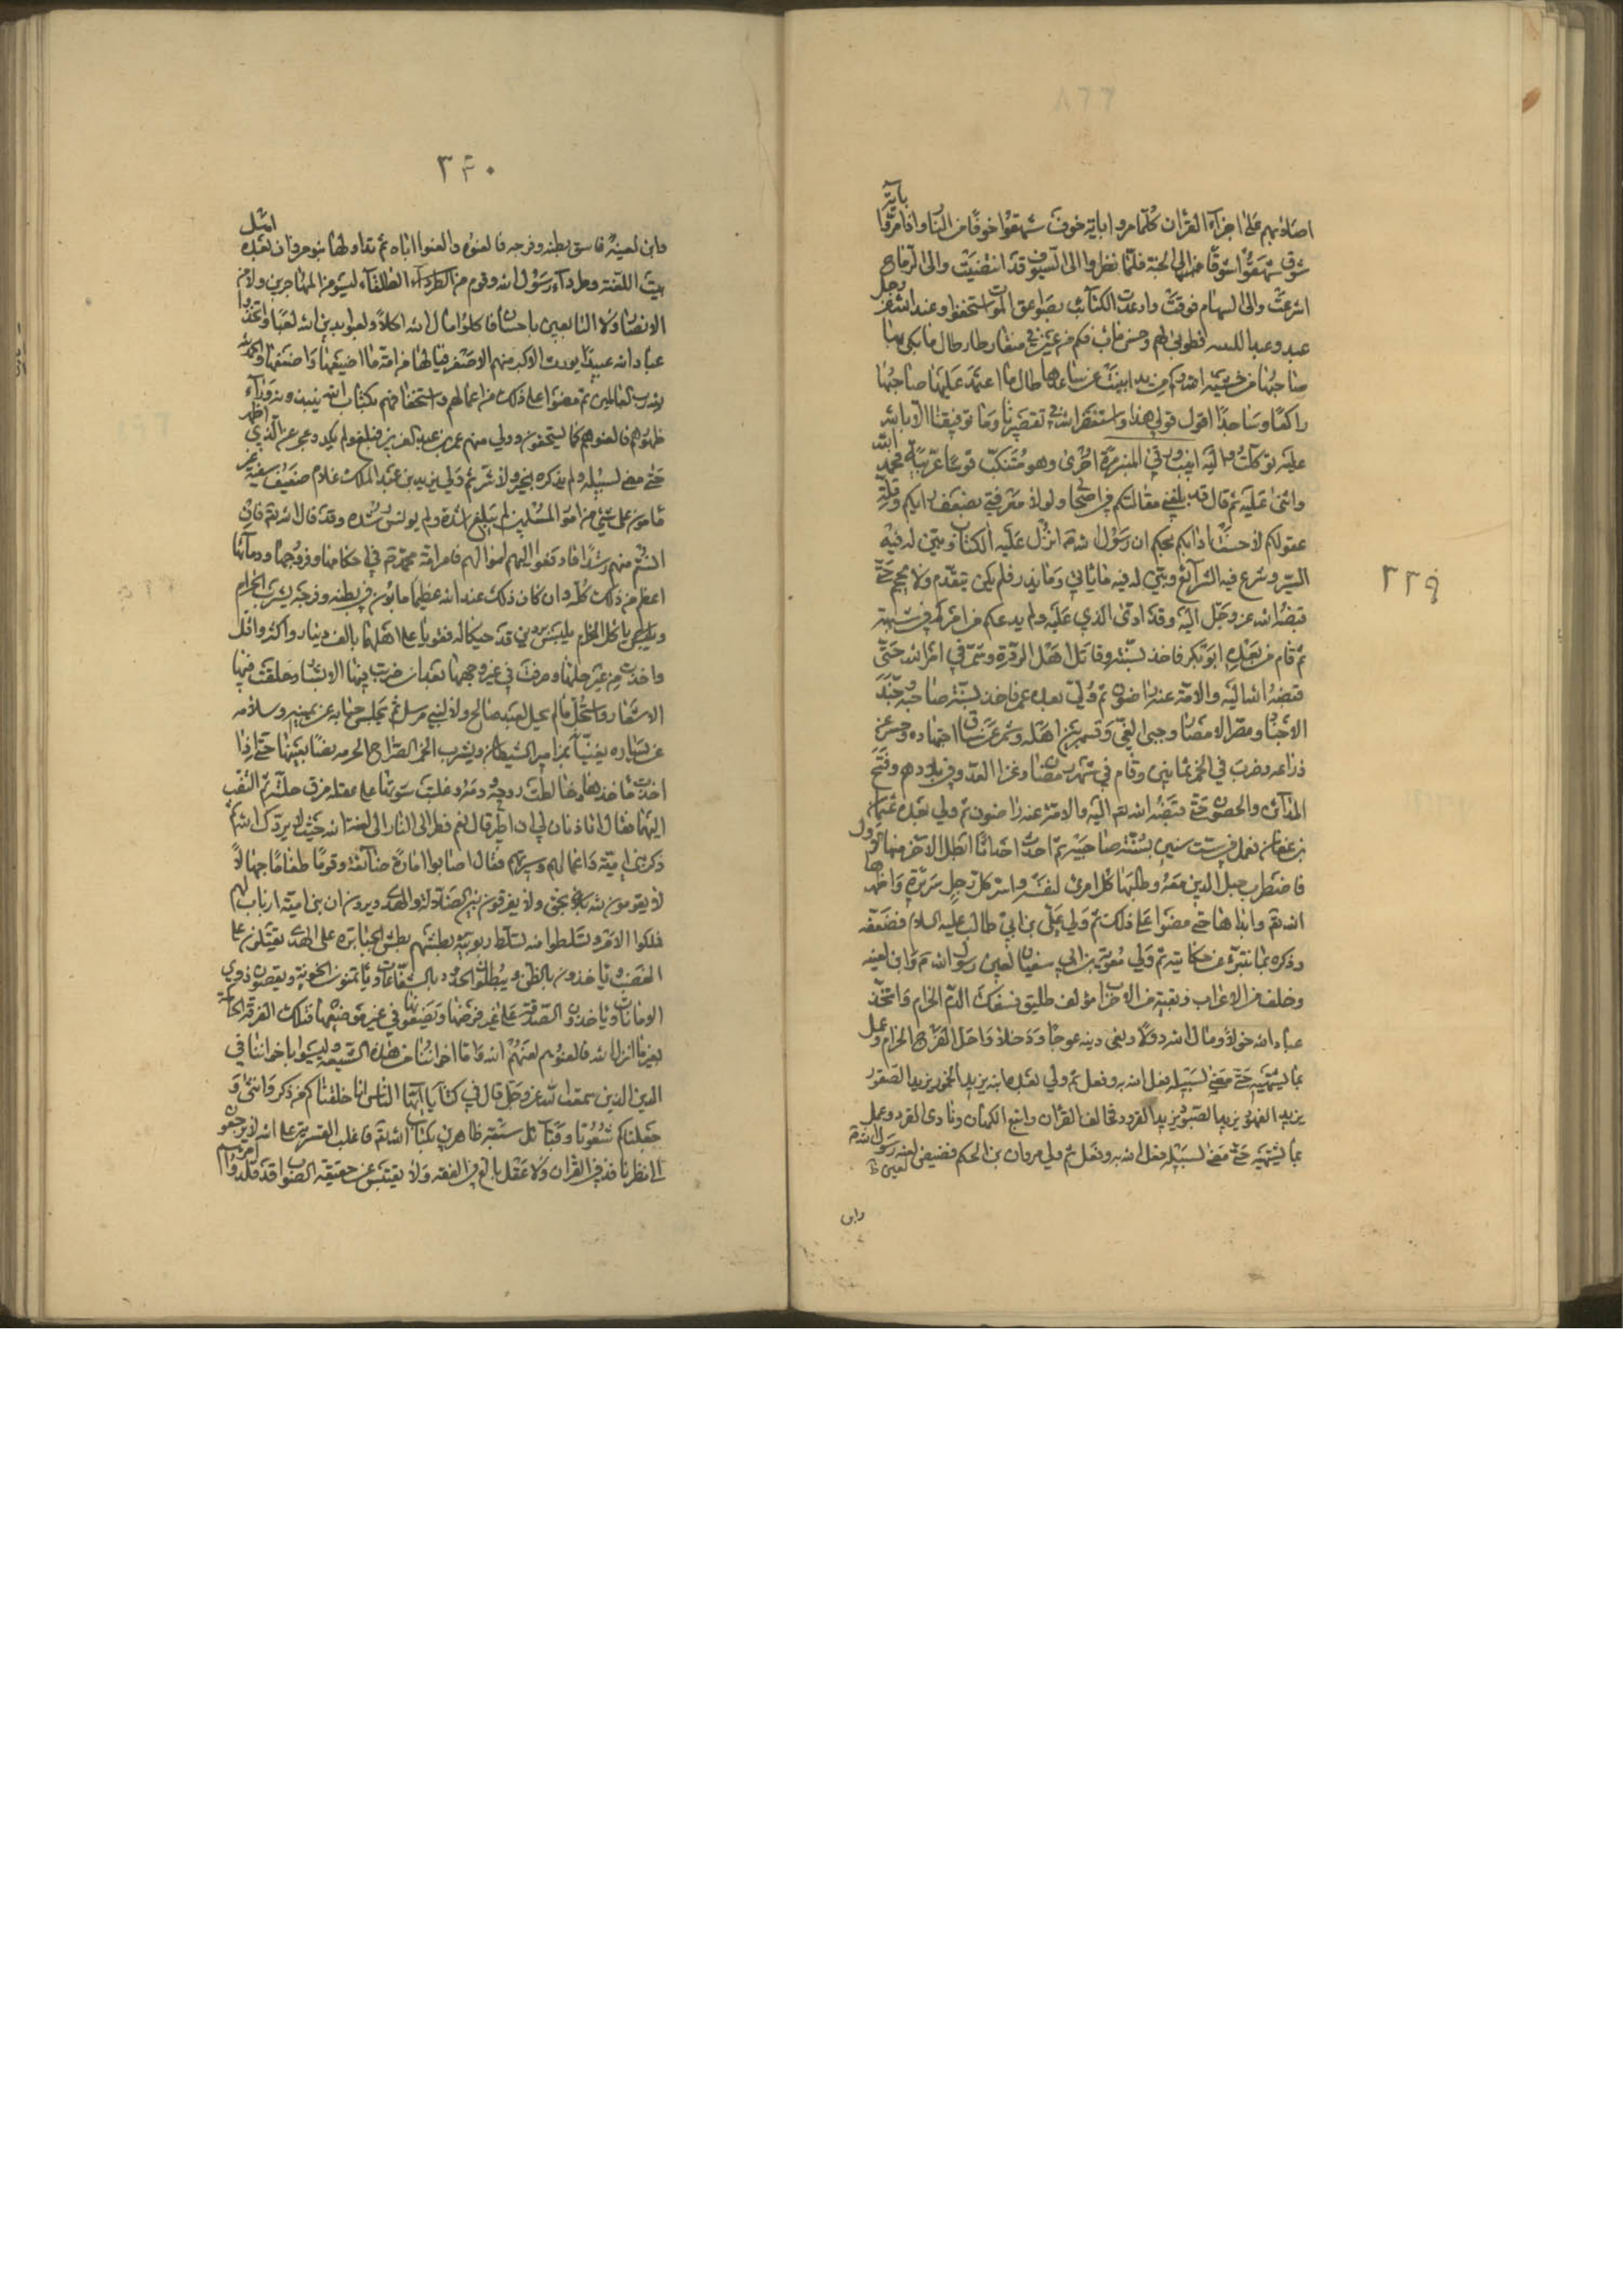 ٣٣٩
اصلابهم على اجزاء القران كلما مروا باية خوف شهقوا خوفا من النار واذا مروا بآية
شوق شهقوا شوقا الى الجنة فلما نظروا الى السيوف قد انتضيت والى الرماح قد
اشرعت والى السهام فوقت وارعدت الكتائب بصواعق الموت استخفوا وعند الله
فطوبى لهم وحسن ماب فكم من عين في منقار طار طال ما بكى بها
صاحبها من خشية الله وكم من يد ابينت عن ساعدها طال ما اعتمد عليها صاحبها
راكعا وساجدا اقول قولي هذا واستغفر الله من تقصيرنا وما توفيقنا الا بالله
عليه توكلت واليه انيب ورقي المنبر مرة اخرى وهو متنكب قوسا عربية فحمد الله
واثنى عليه ثم قال قد بلغني مقالتكم في اصحابي ولولا معرفتي بضعف رايكم وقلة
عقولكم لاحسنت ادابكم ان رسول الله انزل عليه الكتاب وبين له فيه
السير وشرع فيه الشرائع وبين له فيه ما ياتي وما يذر فلم يكن يتقدم ولا يحجم حتى
قبضه الله عز وجل اليه وقد ادى الذي عليه ولم يدعكم من امركم في شبهة
ثم قام من بعده ابو بكر فاخذ بسنته وقاتل اهل الردة وشمر في امر الله حتى
قبضه الله اليه والامة عنه راضون ثم ولي بعده عمر فاخذ بسنة صاحبه وجند
الاجناد ومصر الامصار وجبى الفيء وقسمه بين اهله وشمر عن ساق وحسر عن
ذراعه وضرب في الخمر ثمانين وقام في شهر رمضان وغزا العدو في بلادهم وفتح
المدائن والحصون حتى قبضه الله تعالى اليه والامة عنه راضون ثم ولي بعده عثمان
بن عفان فعمل في ست سنين بسنة صاحبيه ثم احدث احداثا ابطل الاخر منها الاول
فاضطرب حبل الدين بعده وطلبها كل امرئ لنفسه واسر كل رجل سريرة واظهرها
الله تعالى وابداها حتى مضوا على ذلك ثم ولي علي بن ابي طالب عليه السلام فضعفه
وذكره بما نتبرء من حكايته ثم ولي معوية بن ابي سفيان لعين رسول الله وابن لعينه
وخلف من الاعراب وبقية من الاحزاب مؤلف طليق فسفك الدم الحرام واتخذ
عباد الله خولا ومال الله دولا وبغى دينه عوجا ودخلا واحل الفرج الحرام وعمل
بما يشتهيه حتى مضى لسبيله فعل الله به وفعل ثم ولي بعده ابنه يزيد يزيد الخمور يزيد الصقور
يزيد الفهود يزيد الصيود يزيد القرود فخالف القران واتبع الكهان ونادى القرد وعمل
بما يشتهيه حتى مضى لسبيله فعل الله به وفعل ثم ولي مروان بن الحكم لعين رسول الله
وابن
٣٤٠
وابن لعينه فاسق بطنه وفرجه فالعنوه والعنوا اباه ثم تداولها بنو مروان بعده اهل
بيت اللعنة وطرداء رسول الله وقوم من الطلقاء ليسوا من المهاجرين ولا من
الانصار ولا التابعين باحسان فاكلوا مال الله اكلا ولعبوا بدين الله لعبا واتخذوا
عباد الله عبيدا يورث الاكبر منهم الاصغر فيا لها من امة ما اضيعها واضعفها والحمد
لله رب العالمين ثم مضوا على ذلك من اعمالهم واستخفافهم بكتاب الله نبذوه وراء
ظهورهم فالعنوهم كما يستحقون وولي منهم عمر بن عبد العزيز فبلغ ولم يكد وعجز عن الذي اظهر
حتى مضى لسبيله ولم يذكره بخير ولا شر ثم ولي يزيد بن عبد الملك غلام ضعيف سفيه غير
مامون على شيء من امور المسلمين لم يبلغ اشده ولم يونس رشده وقد قال الله تعالى فان
انستم منهم رشدا فادفعوا اليهم اموالهم فامر امة محمد في احكامها وفروجها ودمائها
اعظم من ذلك كله وان كان ذلك عند الله عظيما مابون في بطنه وفرجه يشرب الحرام
وياكل الحرام ويلبس بردين قد حيكا له وقوما على اهلهما بالف دينار واكثر واقل
واخذت من غير حلها وصرفت في غير وجهها بعد ان ضربت فيها الابشار وحلقت فيها
الاشعار واستحل ما لم يحل لعبد صالح ولا لنبي مرسل ثم يجلس حبابه عن يمينه وسلامه
عن يساره يغنيان بمزامير الشيطان ويشرب الخمر الصراح المحرمة نصا بعينها حتى اذا
اخذت ماخذها وخالطت روحه ودمه وغلبت سورتها على عقله مزق حلته ثم التفت
اليهما فقال اتاذنان لي ان اطير قال نعم فطر الى النار الى لعنة الله حيث لا يردك الله ثم
ذكر بني امية واعمالهم وسيرهم فقال اصابوا امارة ضائعة وقوما طغاما جهالا
لا يقومون لله بحق ولا يفرقون بين الضلالة والهدى ويرون ان بني امية ارباب لهم
فملكوا الامر وتسلطوا فيه تسلط ربوبية بطشهم بطش الجبابرة يقتلون على
الغضب وياخذون بالظن ويبطلون الحدود بالشفاعات ويامنون الخونة ويقصون ذوي
الامانات وياخذون الصدقة على غير فرضها ويضعونها في غير موضعها فتلك الفرقة الحاكمة
بغير ما انزل الله فالعنوهم لعنهم الله واما اخواننا من هذه الشيعة وليسوا باخواننا في
الدين سمعت الله عز وجل قال في كتابه يا ايها الناس انا خلقناكم من ذكر وانثى و
جعلناكم شعوبا وقبائل شيعة ظاهرت بكتاب الله على الله لا يرجعون
الى نظر نافذ في القران ولا عقل بالغ في الفقه ولا تفتيش عن حقيقة الصواب قد قلدوا امرهم